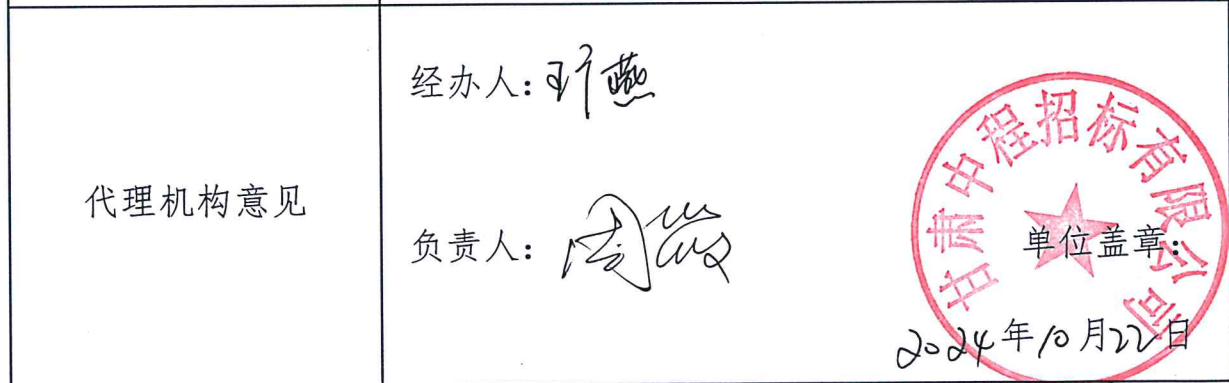 代理机构意见
经办人：
负责人：周薇
甘肃中程招标有限公司
单位盖章：
2024年10月22日